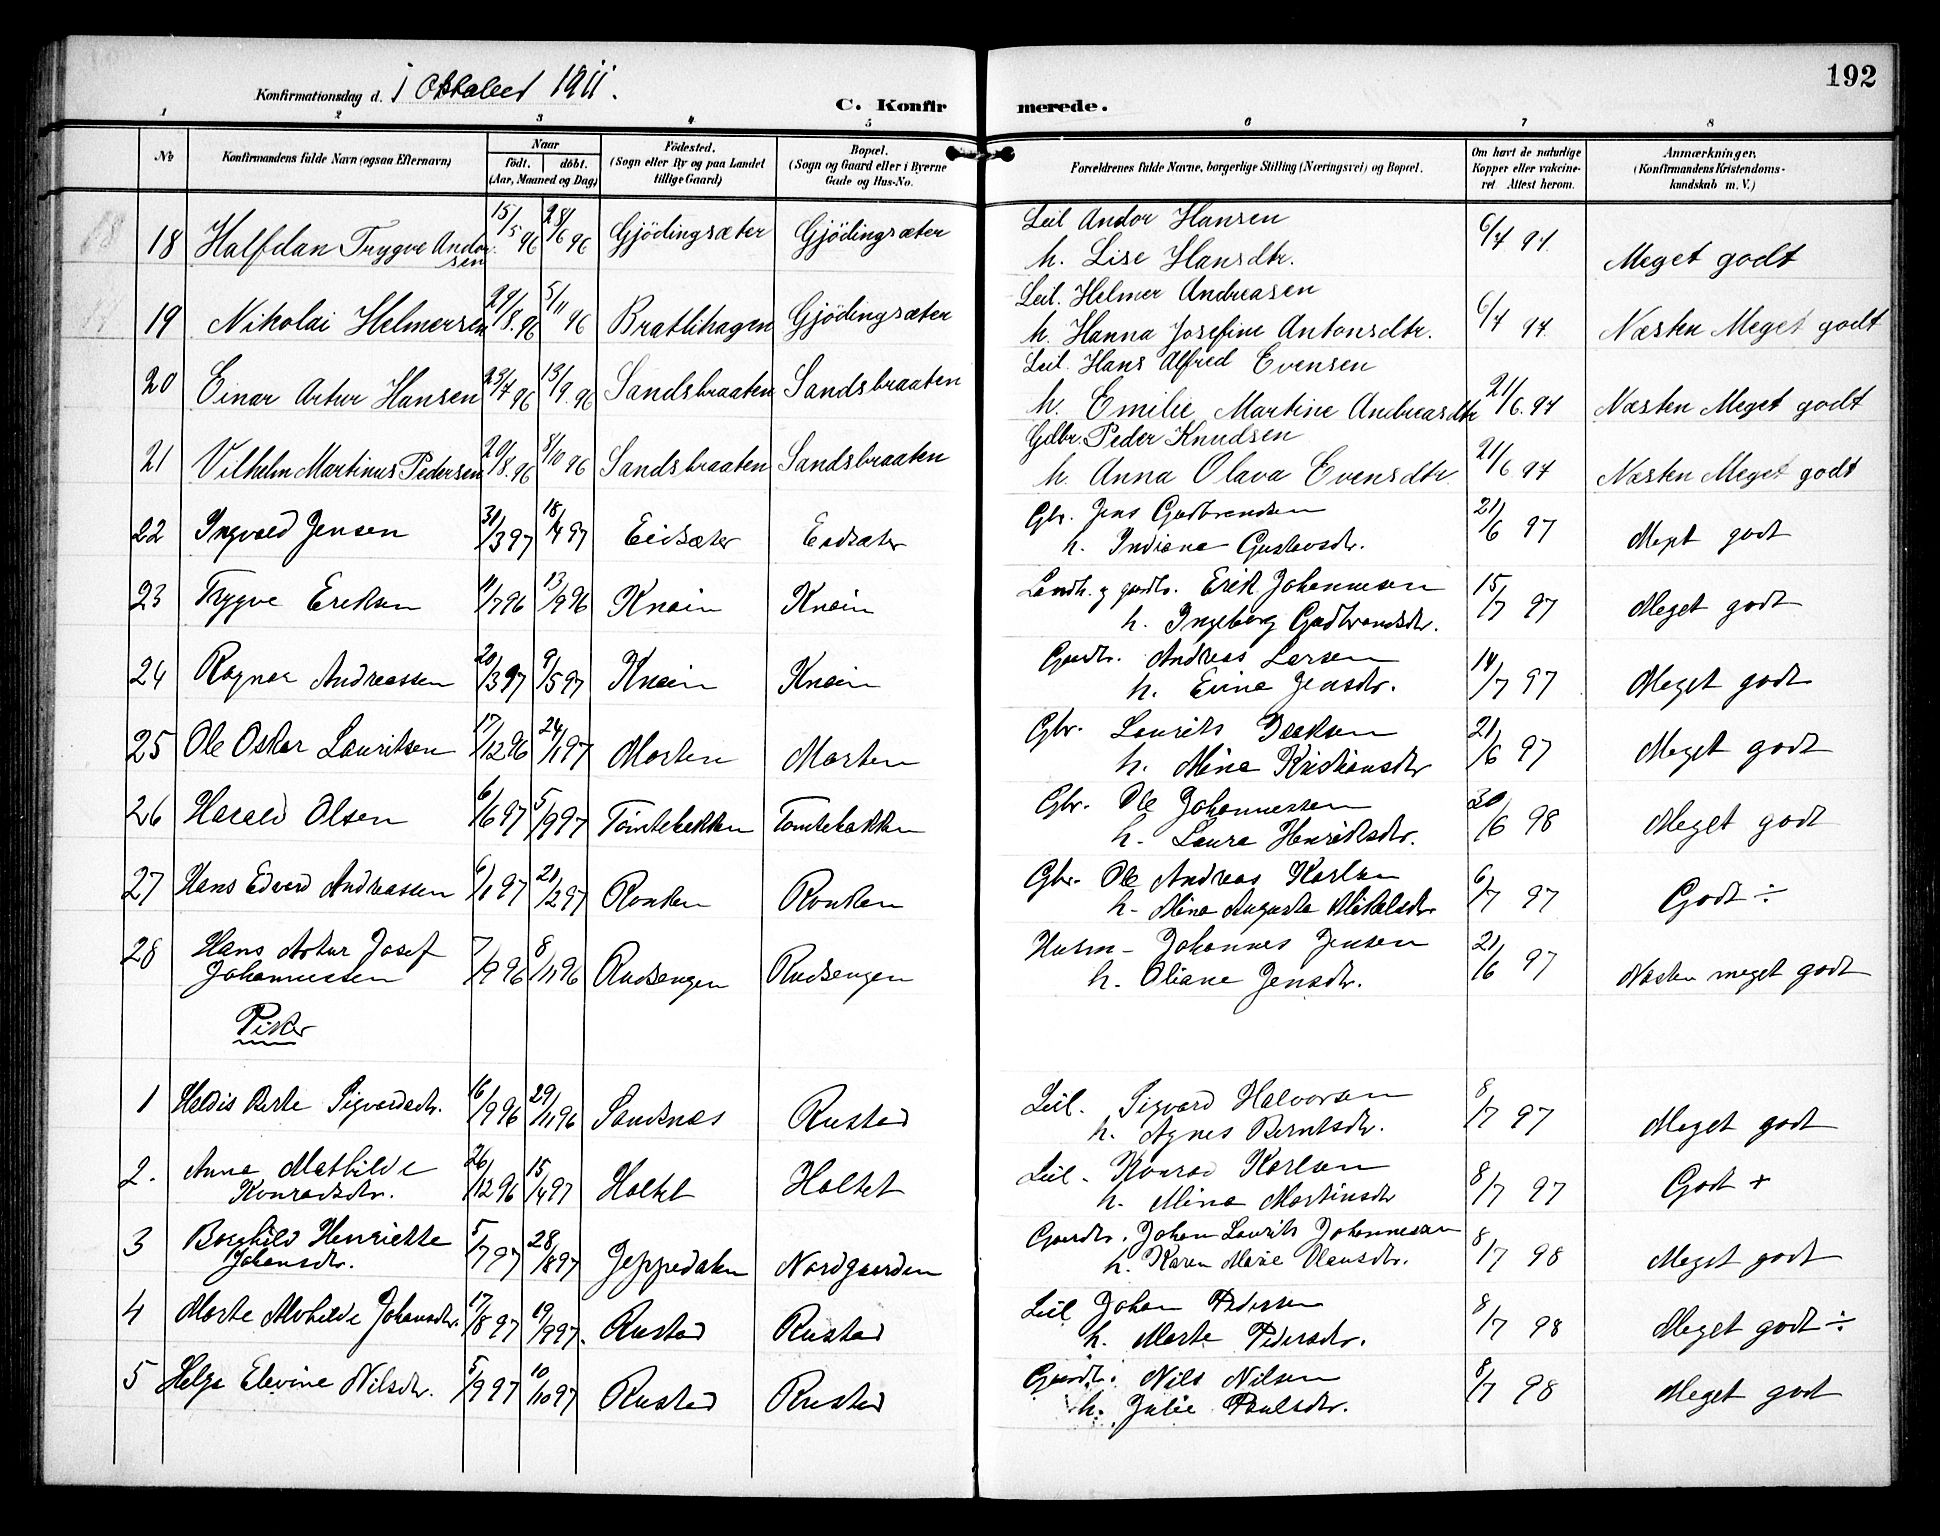 192
Konfirmationsdag d. i Oktober 1911.
C. Konfirmerede.
1 2 3 4 5 6 7 8
No
Konfirmandens fulde Navn (ogsaa Efternavn)
Naar
födt. döbt.
(Aar, Maaned og Dag)
Födested.
(Sogn eller By og paa Landet
tillige Gaard)
Bopæl.
(Sogn og Gaard eller i Byerne
Gade og Hus-No.
Forældrenes fulde Navne, borgerlige Stilling (Næringsvei) og Bopæl.
Om havt de naturlige
Kopper eller vakcine-
ret Attest herom.
Anmærkninger,
(Konfirmandens Kristendoms-
kundskab m. V.)
18 Halfdan Trygve Andorsen 15/5 96 28/6 96 Gjödingsæter Gjödingsæter Leil Andor Hansen
h. Lise Hansdtr. 6/7 97. Meget godt
19 Nikolai Helmersen 29/8. 96 5/11 96 Bratlihagen Gjödingsæter Leil. Helmer Andreasen
h. Hanna Josefine Antonsdtr. 6/7 97. Næsten Meget godt
20 Einar Artur Hansen 23/7 96 13/9. 96 Sandsbraaten Sandsbraaten Leil. Hans Alfred Evensen
h. Emilie Martine Andreasdtr 21/6. 97 Næsten Meget godt
21 Vilhelm Martinus Pedersen 20/8. 96 8/10 96 Sandsbraaten Sandsbraaten Gdbr. Peder Knudsen
h. Anna Olava Evensdtr 21/6 97 Næsten Meget godt
22 Ingvald Jensen 31/3 97 18/4 97 Eidsæter Eidsæter Gbr. Jens Gudbrandsen
h. Indiana Gustavsdr. 21/6 97 Meget godt
23 Trygve Eriksen 11/7 96 13/9 96 Knain Knain Landh. g gaardbr. Erik Johannesen
h. Ingeborg Gudbrandsdr. 15/7 97 Meget godt
24 Ragnar Andreassen 20/3 97 9/5 97 Knain Knain Gaardbr. Andreas Larsen
h. Evine Jensdr. 14/7 97 Meget godt
25 Ole Oskar Lauritsen 17/12 96 24/1 97 Morten Morten Gbr. Laurits Isaksen
h. Mina Kristiansdtr 21/6 97 Meget godt
26 Harald Olsen 6/6 97 5/9 97 Tömtebakken Tomtebakken Gbr. Ole Johannessen
h. Laura Henriksdtr. 30/6 98 Meget godt
27 Hans Edvard Andreassen 6/1 97 21/2 97 Rouken Rouken Gbr. Ole Andreas Karlsen
h. Mina Augusta Mikalsdtr 6/7 97 Godt ÷
28 Hans Artur Josef
Johannessen 7/9 96 8/11 96 Rudsengen Rudsengen Husm - Johannes Jensen
h. Oliane Jensdtr. 21/6 97 Næsten meget godt
Piker
1 Heldis Berte Sigvardsdtr. 16/9 96 29/11 96 Sandsnes Rustad Leil. Sigvard Halvorsen
h. Agnes Berntsdtr. 8/7 97 Meget godt
2. Anna Mathilde
Konradsdtr. 26/12 96 15/4 97 Holtet Holtet Leil. Konrad Karlsen
h. Mina Martinsdtr 8/7 97 Godt +
3 Borghild Henriette
Johansdtr. 5/7 97 28/8 97 Jeppedalen Nordgaarden Gaardbr. Johan Laurits Johannessen
h. Karen Marie Olausdtr. 8/7 98 Meget godt
4 Marte Mathilde Johansdtr. 17/8 97 19/9 97. Rustad Rustad Leil Johan Pedersen
h. Marte Pedersdtr. 8/7 98 Meget godt ÷
5 Helga Elevine Nilsdtr. 5/9 97 10/10 97 Rustad Rustad Gaardbr. Nils Nilsen
h. Julie Paulsdtr. 8/7 98 Meget godt